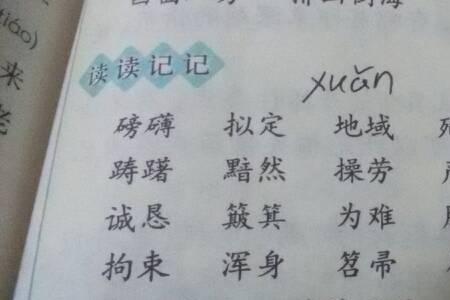 tiáo)
来
读读记记
xuǎn
磅礴 拟定 地域
踌躇 黯然 操劳
诚恳 簸箕 为难
拘束 浑身 笤帚